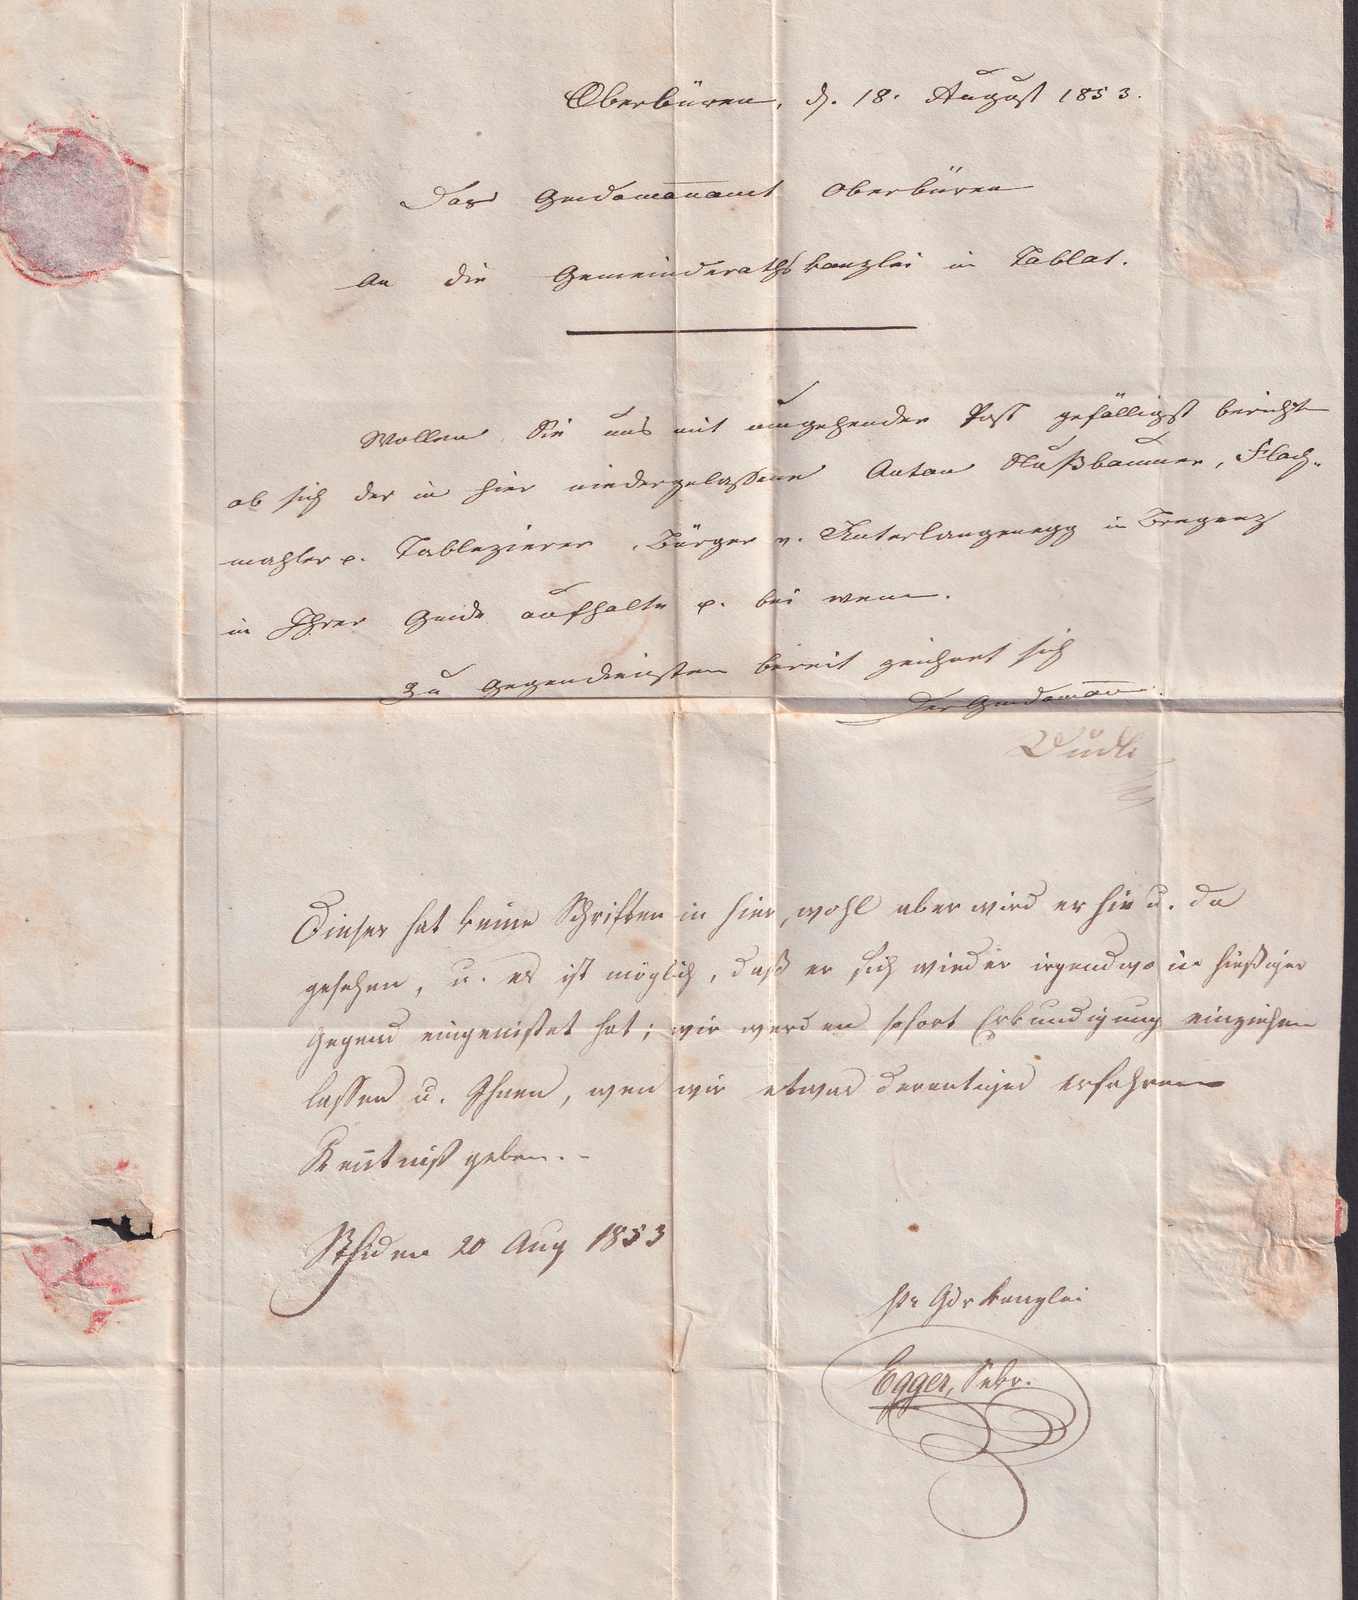 Oberbüren, d. 18. August 1853.
Das Gmdamānamt Oberbüren
An die Gemeindrathskanzlei in Tablat.
Wollen Sie uns mit umgehender Post gefälligst berichte
ob sich der in hier niedergelaßene Anton Nußbaumer, Flach-
mahler u. Tablezierer, Bürger v. Unterlangenegg in Bregenz
in Ihrer Gmde aufhalte u. bei wem.
Zu Gegendiensten bereit zeichnet sich
Der Gmdamān
Dudli
Dieser hat keine Schriften in hier, wohl aber wird er hie u. da
gesehen, u. es ist möglich, daß er sich wieder irgendwo in hiesiger
Gegend eingenistet hat; wir werden sofort Erkundigung einziehen
lassen u. Ihnen, wen wir etwas derartiges erfahren
Kentniß geben. -
StFiden 20 Aug 1853
Gdr kanzlei
Egger, Sekr.